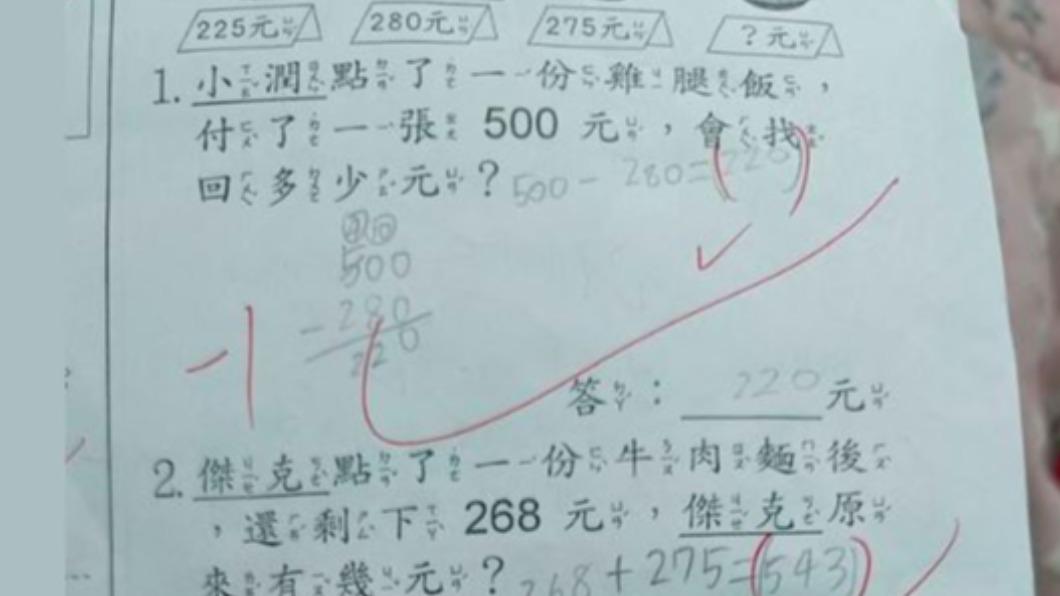 225元 280元 275元 ?元
1. 小潤點了一份雞腿飯，
付了一張 500 元，會找
回多少元？ 500-280=(220)
500
-280
220
-1
答：220元
2. 傑克點了一份牛肉麵後
，還剩下 268 元，傑克原
來有幾元？ 268+275=(543)